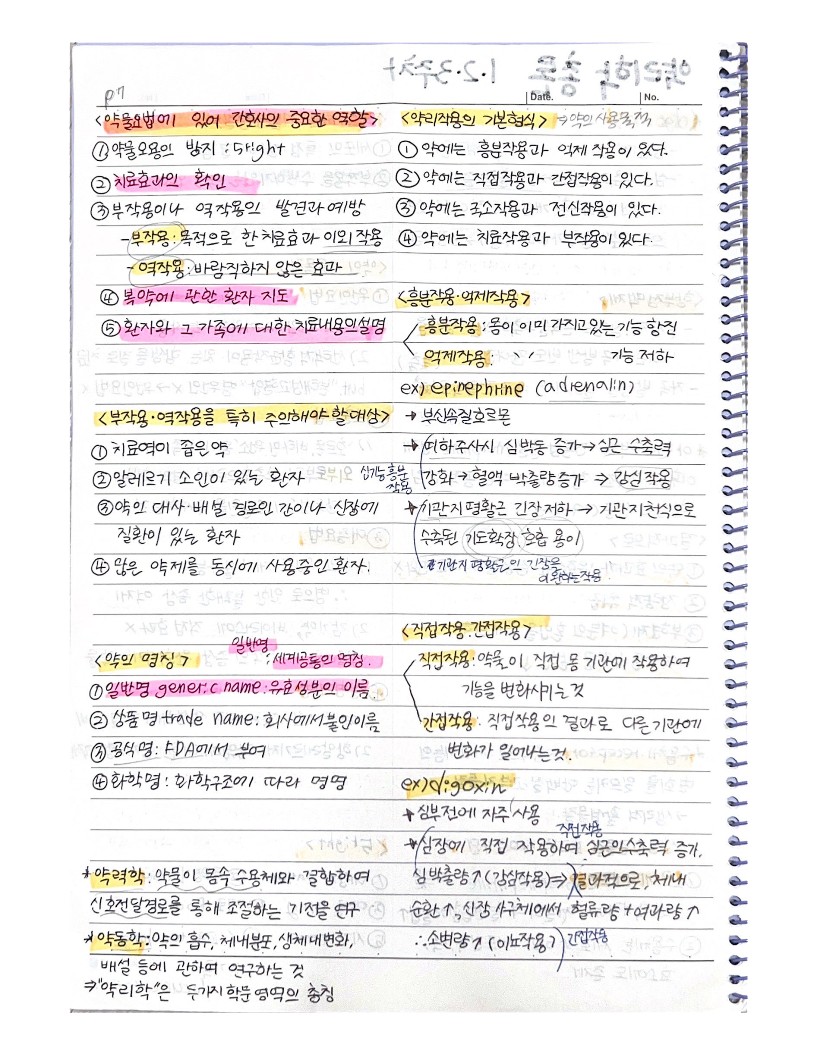 p7
Date.
No.
<약물요법에 있어 간호사의 중요한 역할>
① 약물오용의 방지 : 5right
② 치료효과의 확인
③ 부작용이나 역작용의 발견과 예방
- 부작용 : 목적으로 한 치료효과 이외 작용
- 역작용 : 바람직하지 않은 효과
④ 복약에 관한 환자 지도
⑤ 환자와 그 가족에 대한 치료내용의 설명
<부작용·역작용을 특히 주의해야 할 대상>
① 치료역이 좁은 약
② 알레르기 소인이 있는 환자
③ 약의 대사·배설 경로인 간이나 신장에
질환이 있는 환자
④ 많은 약제를 동시에 사용중인 환자.
<약의 명칭>
일반명 : 세계공통의 명칭.
① 일반명 generic name : 유효성분의 이름
② 상품명 trade name : 회사에서 붙인이름
③ 공식명 : FDA에서 부여
④ 화학명 : 화학구조에 따라 명명
* 약력학 : 약물이 몸속 수용체와 결합하여
신호전달경로를 통해 조절하는 기전을 연구
* 약동학 : 약의 흡수, 체내분포, 생체내변화,
배설 등에 관하여 연구하는 것
⇒ "약리학"은 두가지 학문 영역의 총칭
<약리작용의 기본형식> → 약의 사용목적
① 약에는 흥분작용과 억제 작용이 있다.
② 약에는 직접작용과 간접작용이 있다.
③ 약에는 국소작용과 전신작용이 있다.
④ 약에는 치료작용과 부작용이 있다.
<흥분작용·억제작용>
흥분작용 : 몸이 이미 가지고 있는 기능 항진
억제작용 : 〃 기능 저하
ex) epinephrine (adrenalin)
→ 부신속질호르몬
→ 피하주사시 심박동 증가 → 심근 수축력
강화 → 혈액 박출량 증가 → 강심작용
심기능흥분
작용
→ 기관지 평활근 긴장 저하 → 기관지천식으로
수축된 기도확장, 호흡 용이
기관지 평활근의 긴장을
이완하는작용
<직접작용·간접작용>
직접작용 : 약물이 직접 몸 기관에 작용하여
기능을 변화시키는 것
간접작용 : 직접작용의 결과로 다른기관에
변화가 일어나는것.
ex) digoxin
→ 심부전에 자주 사용
직접작용
→ 심장에 직접 작용하여 심근의수축력 증가,
심박출량↑(강심작용) ⇒ 결과적으로, 체내
순환↑, 신장 사구체에서 혈류량+여과량↑
∴ 소변량↑ (이뇨작용) 간접작용